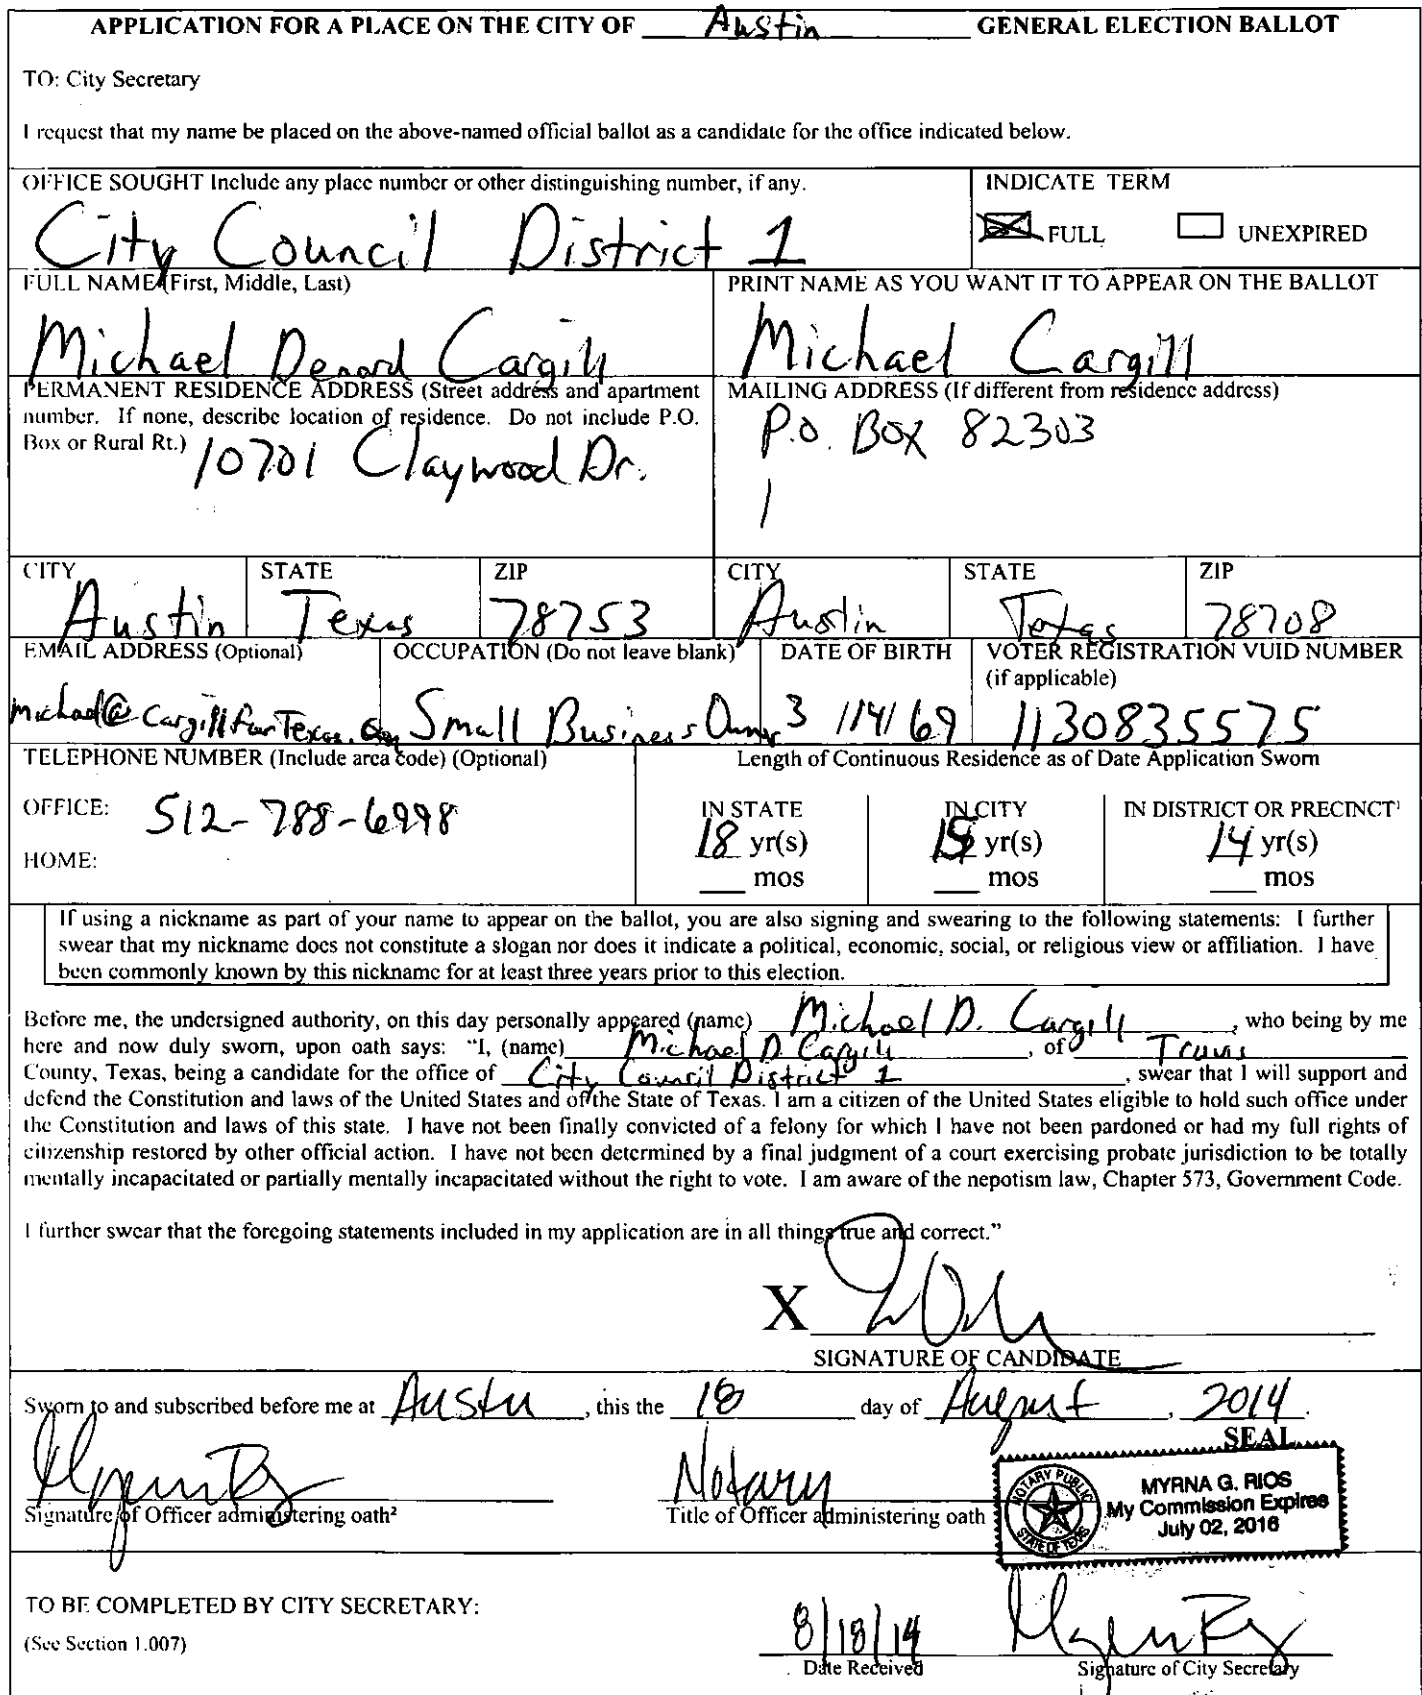 APPLICATION FOR A PLACE ON THE CITY OF Austin GENERAL ELECTION BALLOT
TO: City Secretary
I request that my name be placed on the above-named official ballot as a candidate for the office indicated below.
OFFICE SOUGHT Include any place number or other distinguishing number, if any.
City Council District 1
INDICATE TERM
FULL UNEXPIRED
FULL NAME (First, Middle, Last)
Michael Denard Cargill
PRINT NAME AS YOU WANT IT TO APPEAR ON THE BALLOT
Michael Cargill
PERMANENT RESIDENCE ADDRESS (Street address and apartment
number. If none, describe location of residence. Do not include P.O.
Box or Rural Rt.) 10701 Claywood Dr.
MAILING ADDRESS (If different from residence address)
P.O. Box 82303
CITY STATE ZIP CITY STATE ZIP
Austin Texas 78753 Austin Texas 78708
EMAIL ADDRESS (Optional)
Michael@CargillForTexas.
OCCUPATION (Do not leave blank)
Small Business Owner
DATE OF BIRTH
3 /14/ 69
VOTER REGISTRATION VUID NUMBER
(if applicable)
1130835575
TELEPHONE NUMBER (Include area code) (Optional)
OFFICE: 512-788-6998
HOME:
Length of Continuous Residence as of Date Application Sworn
IN STATE
18 yr(s)
mos
IN CITY
yr(s)
mos
IN DISTRICT OR PRECINCT¹
14 yr(s)
mos
If using a nickname as part of your name to appear on the ballot, you are also signing and swearing to the following statements: I further
swear that my nickname does not constitute a slogan nor does it indicate a political, economic, social, or religious view or affiliation. I have
been commonly known by this nickname for at least three years prior to this election.
Before me, the undersigned authority, on this day personally appeared (name) Michael D. Cargill, who being by me
here and now duly sworn, upon oath says: "I, (name) Michael D Cargill, of Travis
County, Texas, being a candidate for the office of City Council District 1, swear that I will support and
defend the Constitution and laws of the United States and of the State of Texas. I am a citizen of the United States eligible to hold such office under
the Constitution and laws of this state. I have not been finally convicted of a felony for which I have not been pardoned or had my full rights of
citizenship restored by other official action. I have not been determined by a final judgment of a court exercising probate jurisdiction to be totally
mentally incapacitated or partially mentally incapacitated without the right to vote. I am aware of the nepotism law, Chapter 573, Government Code.
I further swear that the foregoing statements included in my application are in all things true and correct."
X
SIGNATURE OF CANDIDATE
Sworn to and subscribed before me at Austin, this the 18 day of August, 2014.
SEAL
Notary
Signature of Officer administering oath² Title of Officer administering oath
NOTARY PUBLIC
STATE OF TEXAS
MYRNA G. RIOS
My Commission Expires
July 02, 2016
TO BE COMPLETED BY CITY SECRETARY:
(See Section 1.007)
8/18/14
Date Received Signature of City Secretary